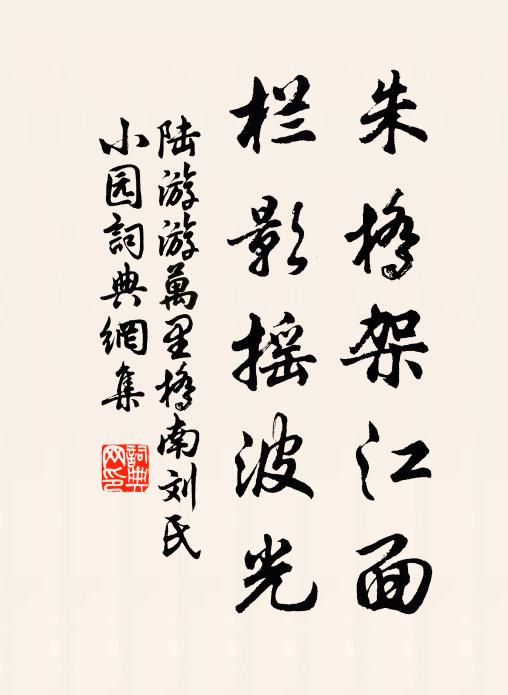 朱橋架江面
栏影摇波光
陆游游萬里橋南刘氏
小园詞典網集
詞典网印